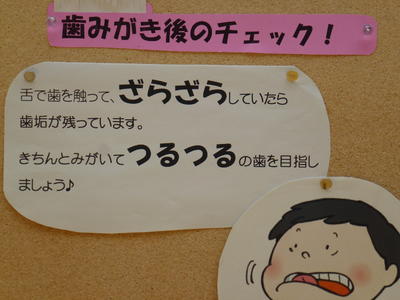 歯みがき後のチェック!
舌で歯を触って、ざらざらしていたら
歯垢が残っています。
きちんとみがいてつるつるの歯を目指し
ましょう♪